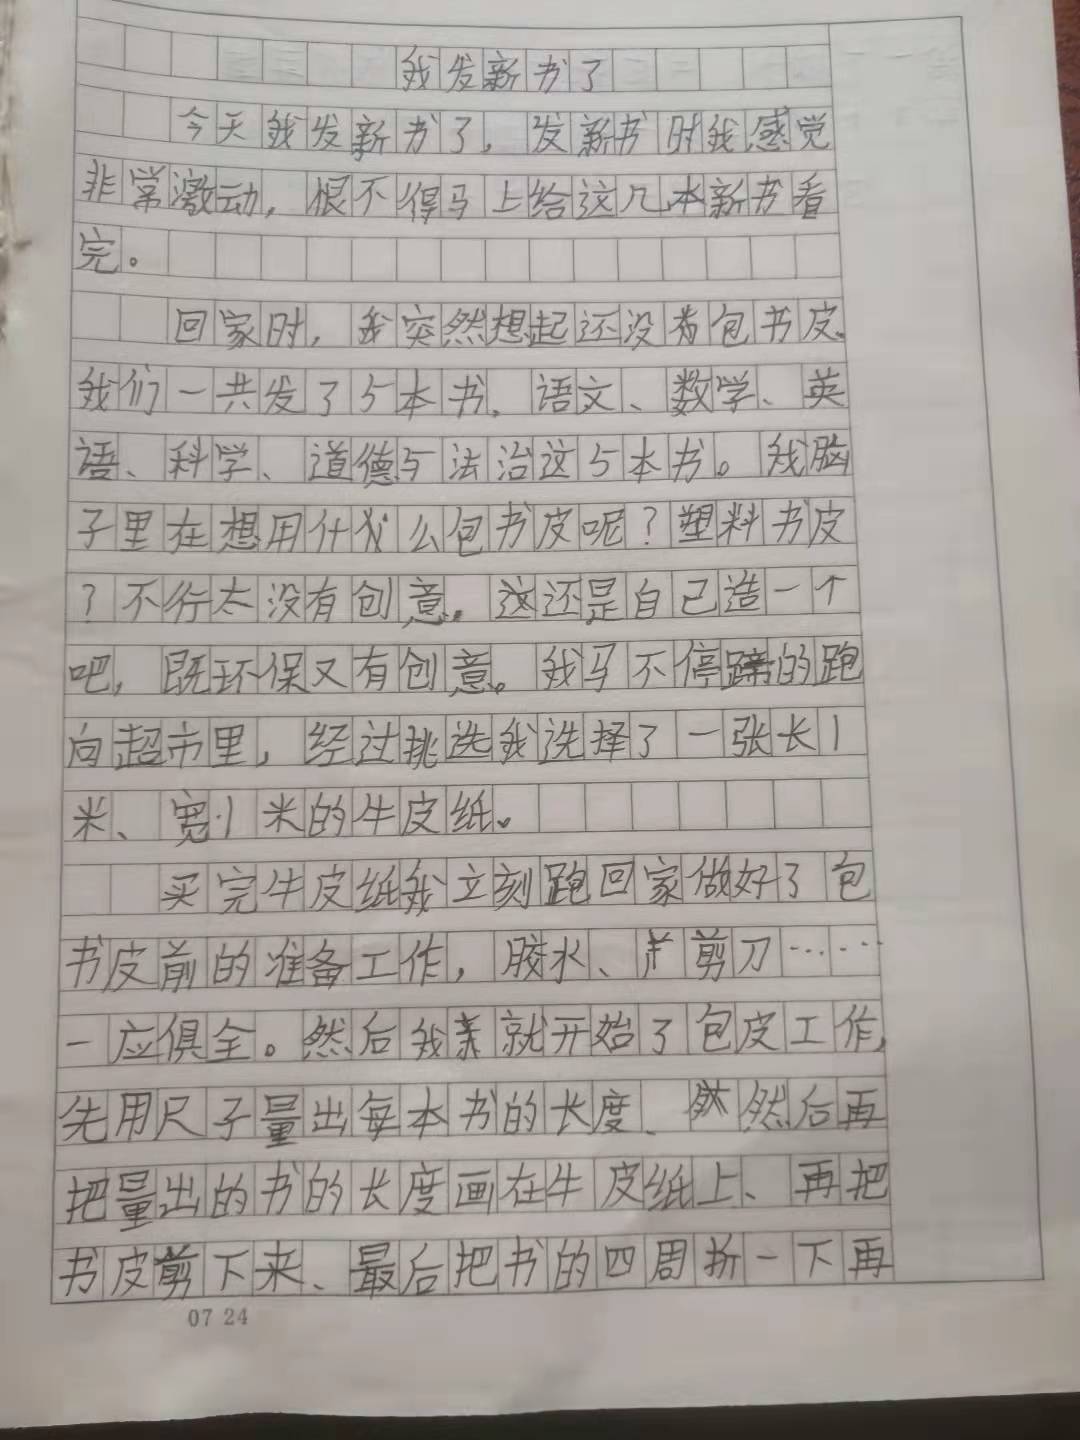 我发新书了
今天我发新书了，发新书时我感觉
非常激动，恨不得马上给这几本新书看
完。
回家时，我突然想起还没有包书皮、
我们一共发了5本书，语文、数学、英
语、科学、道德与法治这5本书。我脑
子里在想用什么包书皮呢？塑料书皮
？不行太没有创意。这还是自己造一个
吧，既环保又有创意。我马不停蹄的跑
向超市里，经过挑选我选择了一张长1
米、宽1米的牛皮纸。
买完牛皮纸我立刻跑回家做好了包
书皮前的准备工作，胶水、剪刀……
一应俱全。然后我就开始了包皮工作，
先用尺子量出每本书的长度、然后再
把量出的书的长度画在牛皮纸上、再把
书皮剪下来、最后把书的四周折一下再
07 24